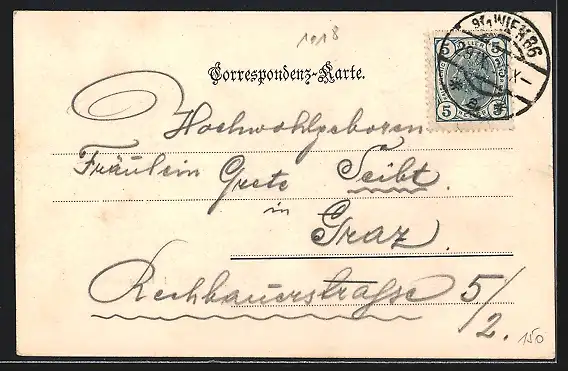 1918
Correspondenz-Karte.
5 5
5 5
WIEN 86
Hochwohlgeboren
Fräulein Grete Seibt.
in
Graz.
Rechbauerstraße 5/2.
150